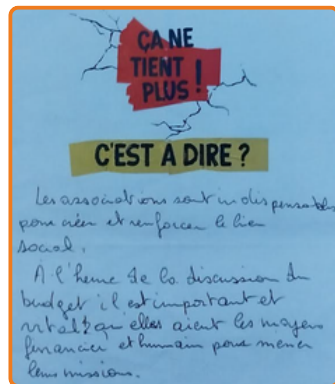 ÇA NE
TIENT
PLUS !
C'EST A DIRE ?
Les associations sont indispensables
pour créer et renforcer le lien
social.
A l'heure de la discussion du
budget il est important et
vital qu'elles aient les moyens
financier et humain pour mener
leurs missions.